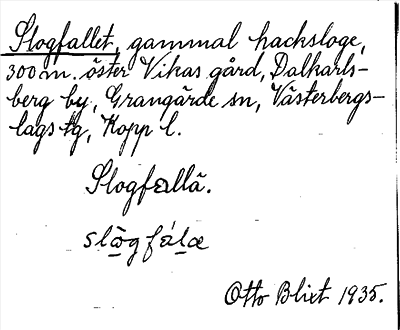 Slogfallet, gammal hacksloge,
300 m. öster Vikas gård, Dalkarls-
berg by, Grangärde sn, Västerbergs-
lags tg, Kopp l.
Slogfallä.
slɔ̀gfálæ
Otto Blixt 1935.